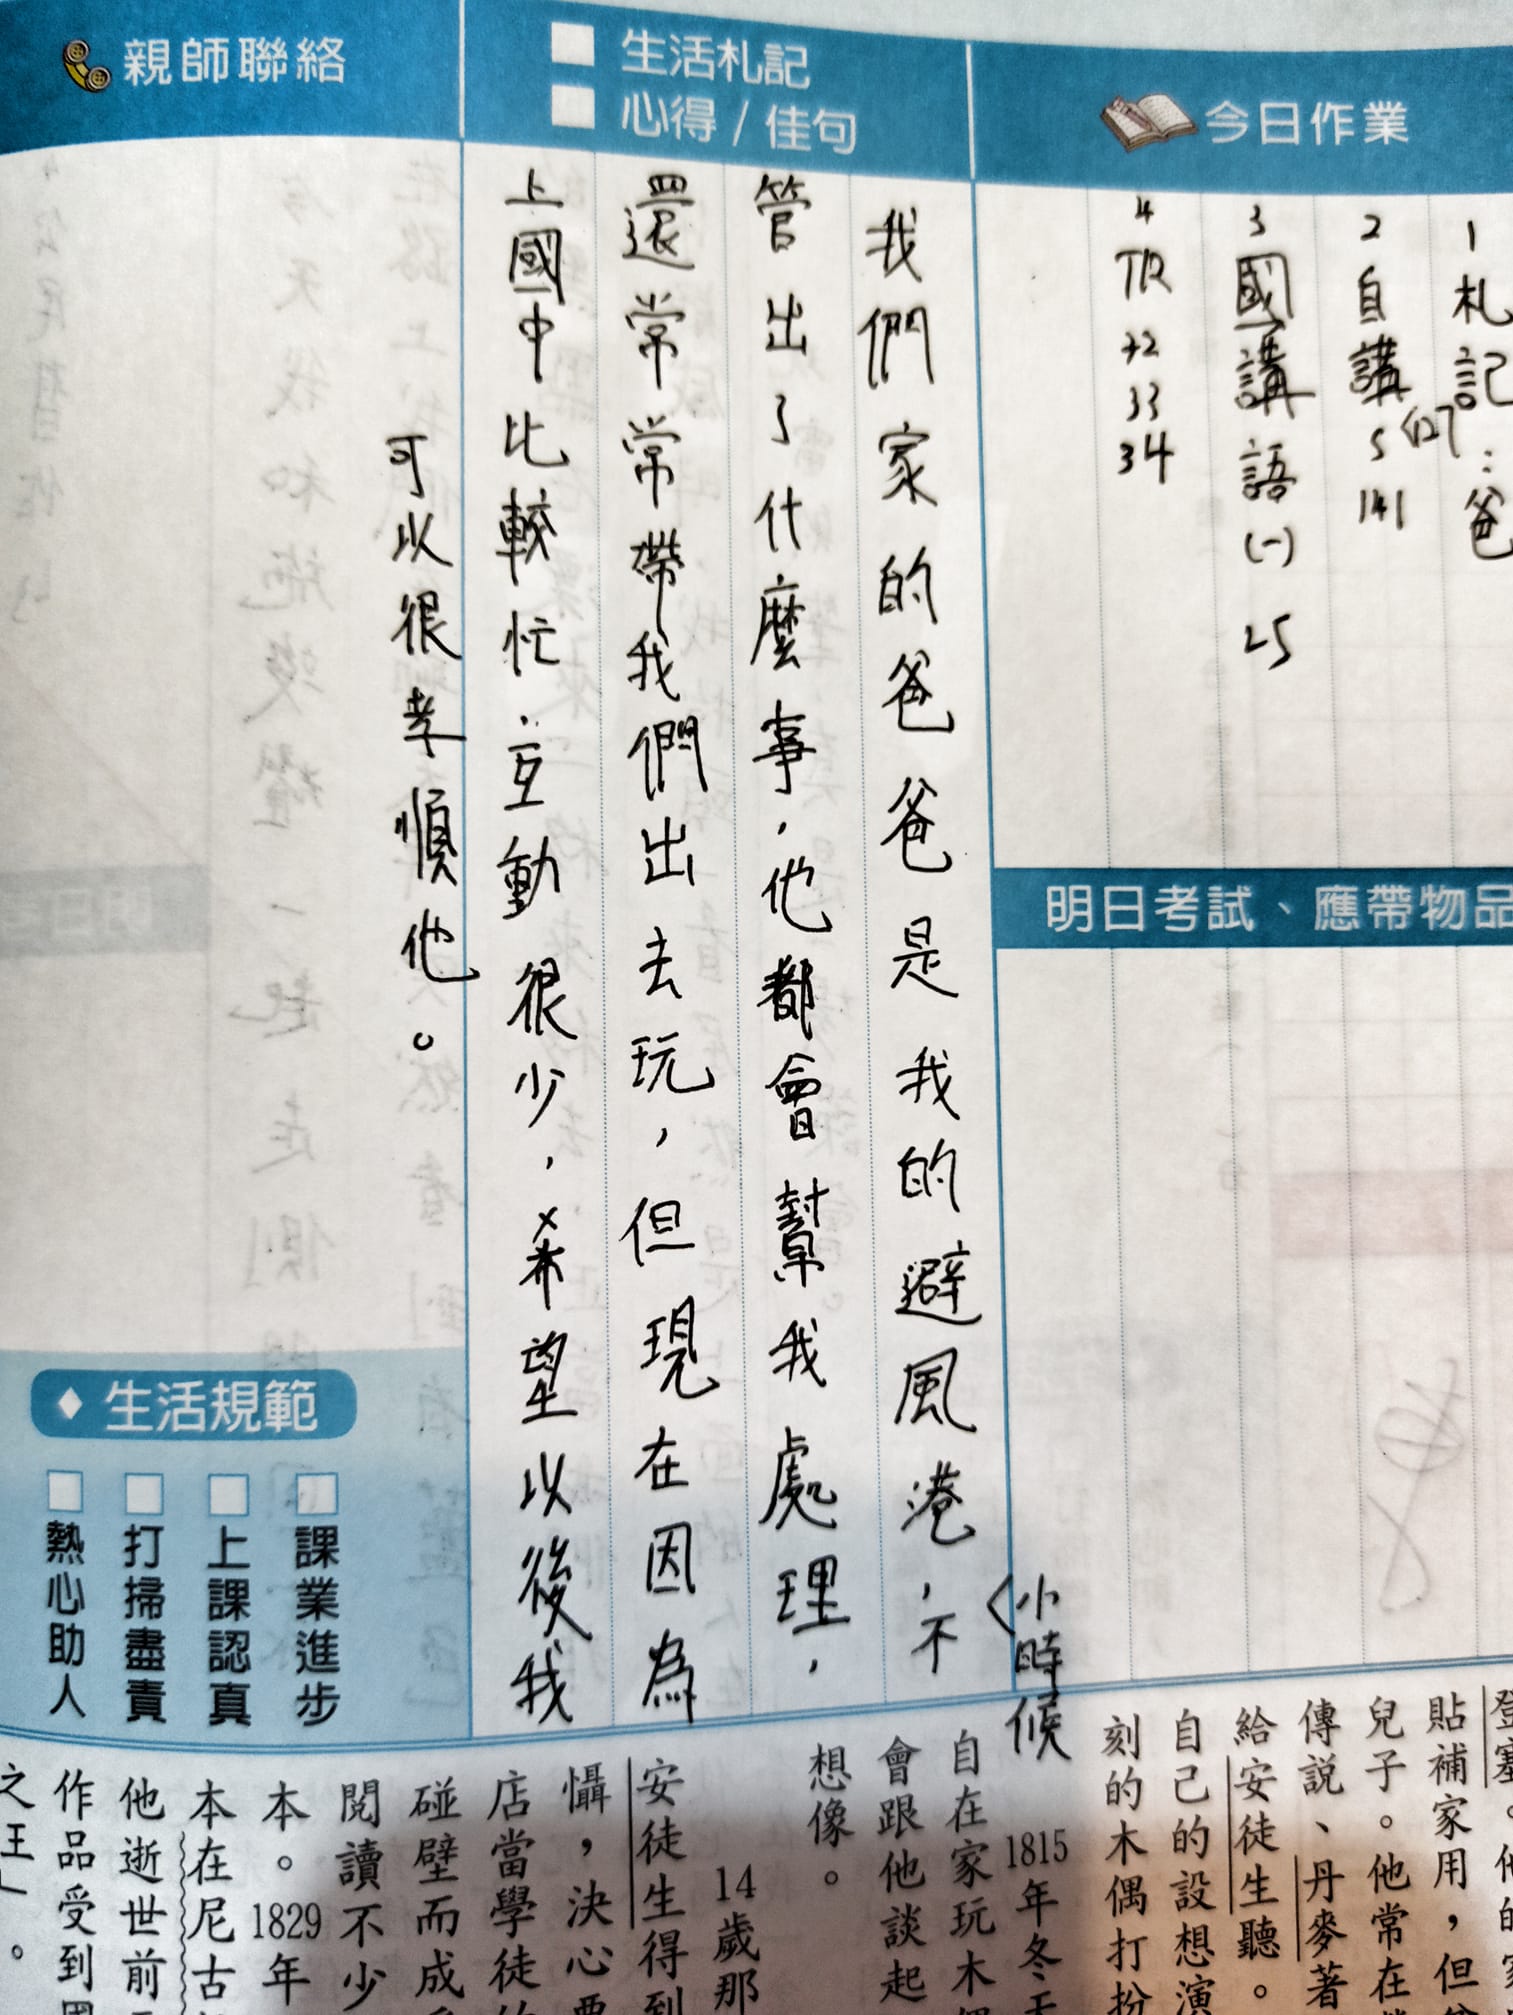 今日作業
1 札記：爸
2 自講 5 127 141
3 國講 語 (一) 25
4 TR 32 33 34
明日考試、應帶物品
生活札記
心得/佳句
我們家的爸爸是我的避風港，不
管出了什麼事，他都會幫我處理，
小時候
還常常帶我們出去玩，但現在因為
上國中比較忙，互動很少，希望以後我
可以很孝順他。
親師聯絡
生活規範
課業進步
上課認真
打掃盡責
熱心助人
登塞。他的家
貼補家用，但
兒子。他常在
傳說、丹麥著
給安徒生聽。
自己的設想演
刻的木偶打扮
1815年冬天
自在家玩木偶
會跟他談起
想像。
14歲那
安徒生得到
懾，決心要
店當學徒的
碰壁而成
閱讀不少
本。1829年
本在尼古
他逝世前
作品受到
之王」。